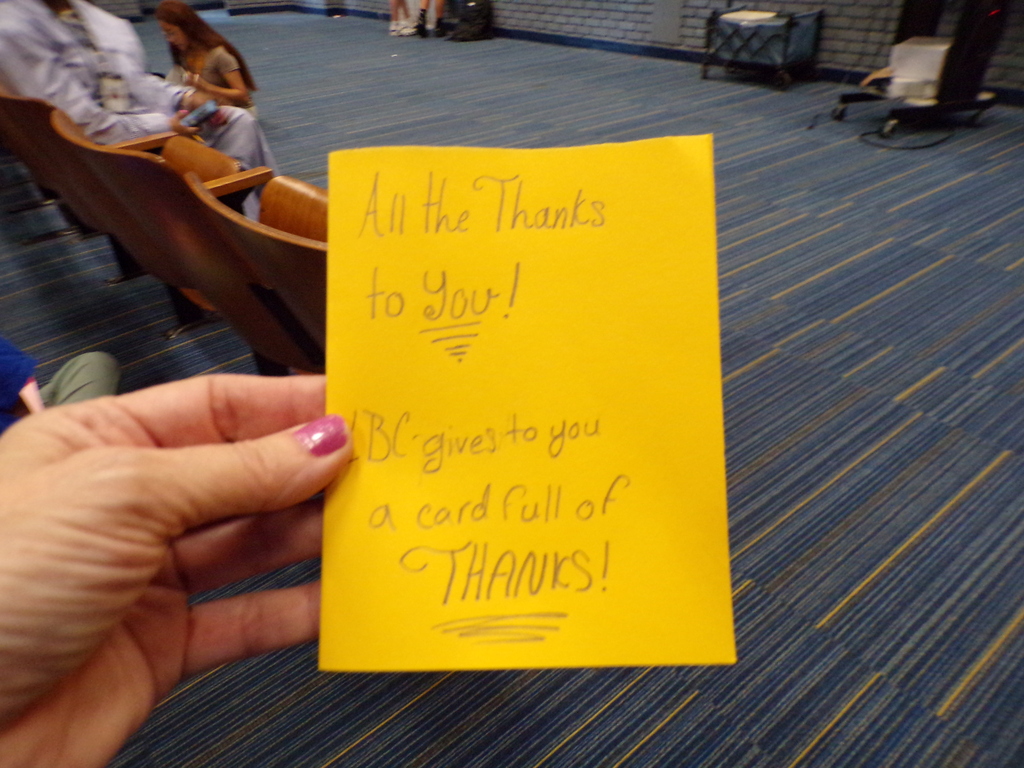 All the Thanks
to You!
LBC gives to you
a card full of
THANKS!